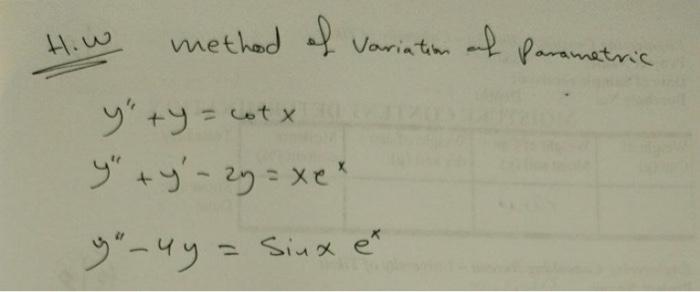 H.W method of Variation of Parametric
y" + y = cot x
y" + y' - 2y = x e^x
y" - 4y = Sinx e^x